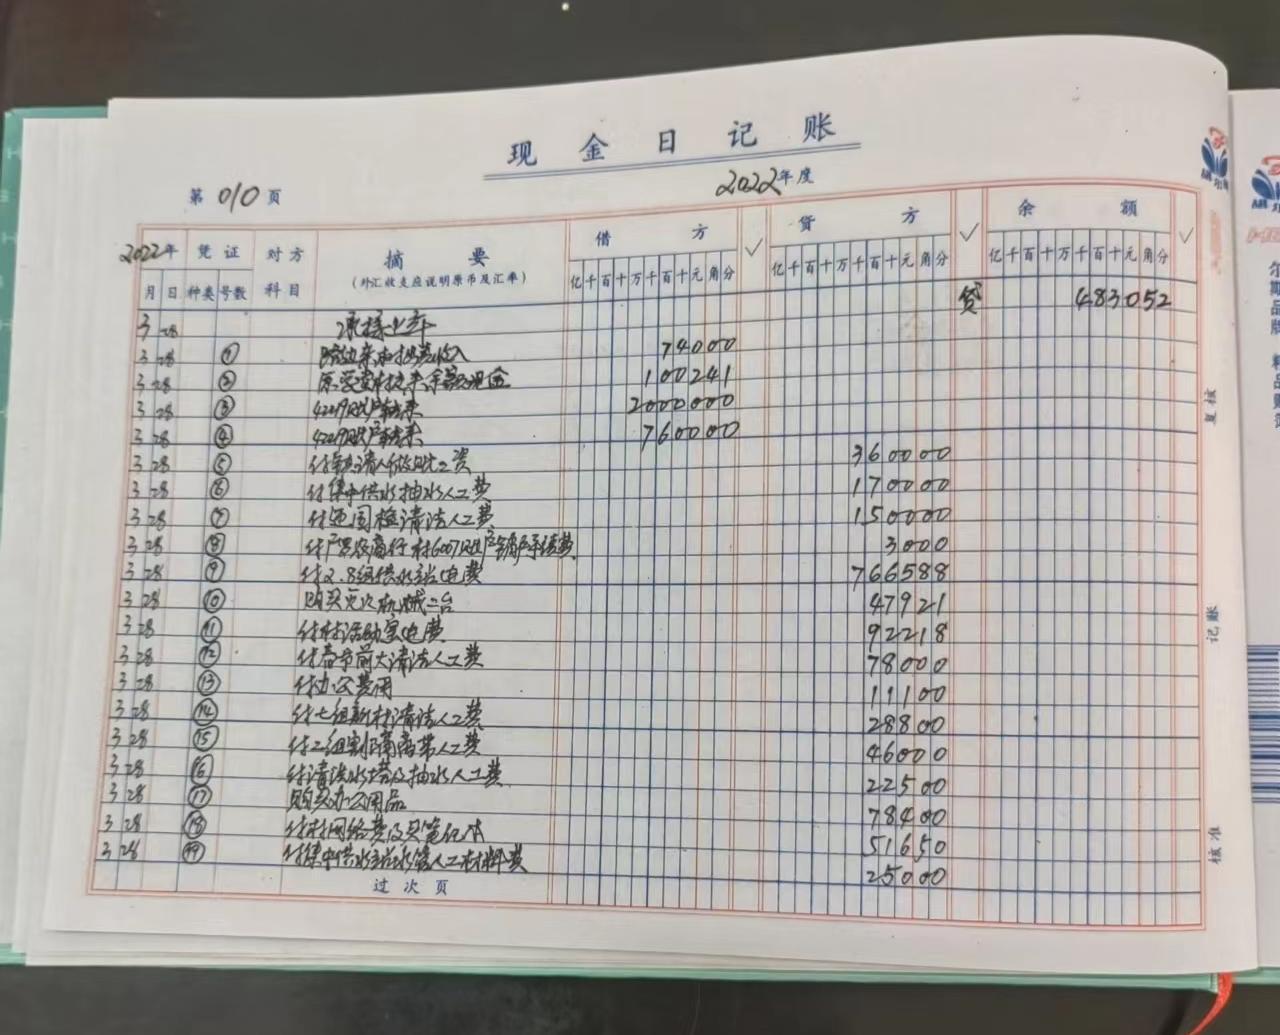 现金日记账
第010页
2022年度
2022年 凭证 对方 摘要 借方 √ 贷方 √ 余额 √
月 日 种类 号数 科目 (外汇收支应说明原币及汇率) 亿千百十万千百十元角分 亿千百十万千百十元角分 亿千百十万千百十元角分
3 28 承接上年 贷 483052
3 28 ① 收入 74000
3 28 ② 现金 100241
3 28 ③ 账户转来 2000000
3 28 ④ 账户转来 760000
3 28 ⑤ 付 请人做 工资 360000
3 28 ⑥ 付集中供水抽水人工费 170000
3 28 ⑦ 付 清洁人工费 150000
3 28 ⑧ 付 农商行 村6007账户销户手续费 3000
3 28 ⑨ 付2.8组供水站电费 766588
3 28 ⑩ 购买 机械二台 47921
3 28 ⑪ 付村活动室电费 92218
3 28 ⑫ 付春节前大清洁人工费 78000
3 28 ⑬ 付办公费用 11100
3 28 ⑭ 付七组新村清洁人工费 28800
3 28 ⑮ 付二组割隔离带人工费 46000
3 28 ⑯ 付清洗水塔及抽水人工费 22500
3 28 ⑰ 购买办公用品 78400
3 28 ⑱ 付村网络费及买笔记本 51650
3 28 ⑲ 付集中供水站水管人工材料费 25000
过次页
复核
记账
核准